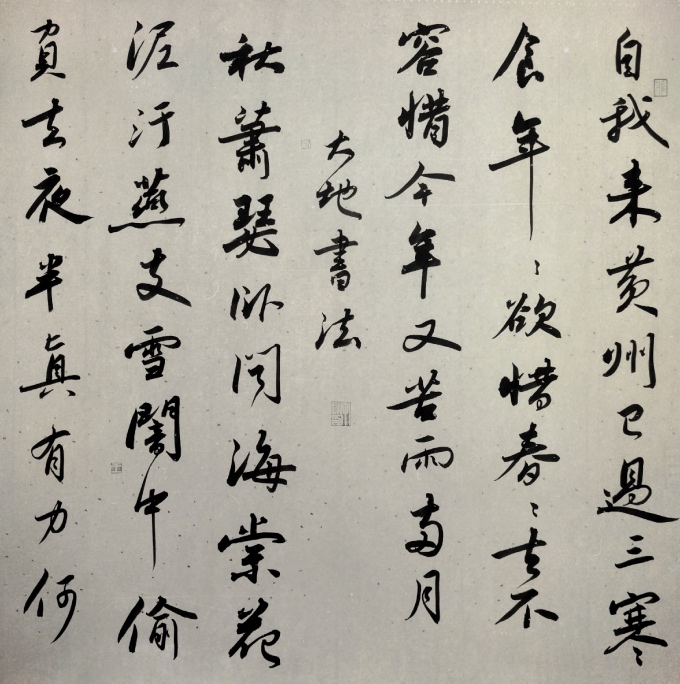 自我来黄州已過三寒
食年〻欲惜春〻去不
容惜今年又苦雨兩月
大地書法
秋蕭瑟卧聞海棠花
泥汙燕支雪闇中偷
負去夜半真有力何